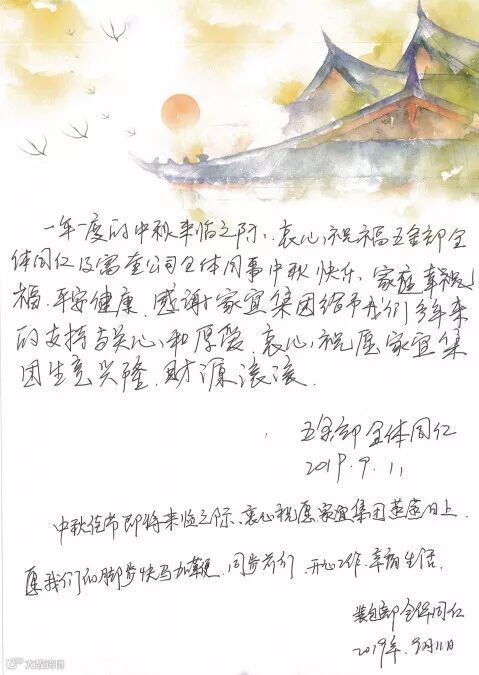 一年一度的中秋来临之际、衷心祝福五金部全
体同仁及富奎公司全体同事中秋快乐、家庭幸
福、平安健康、感谢家宜集团给予我们多年来
的支持与关心和厚爱、衷心祝愿家宜集
团生意兴隆、财源滚滚、
五金部全体同仁
2019.9.11
中秋佳节即将来临之际、衷心祝愿家宜集团蒸蒸日上、
愿我们的脚步快马加鞭、同步前行、开心工作、幸福生活、
部全体同仁
2019年.9月11日